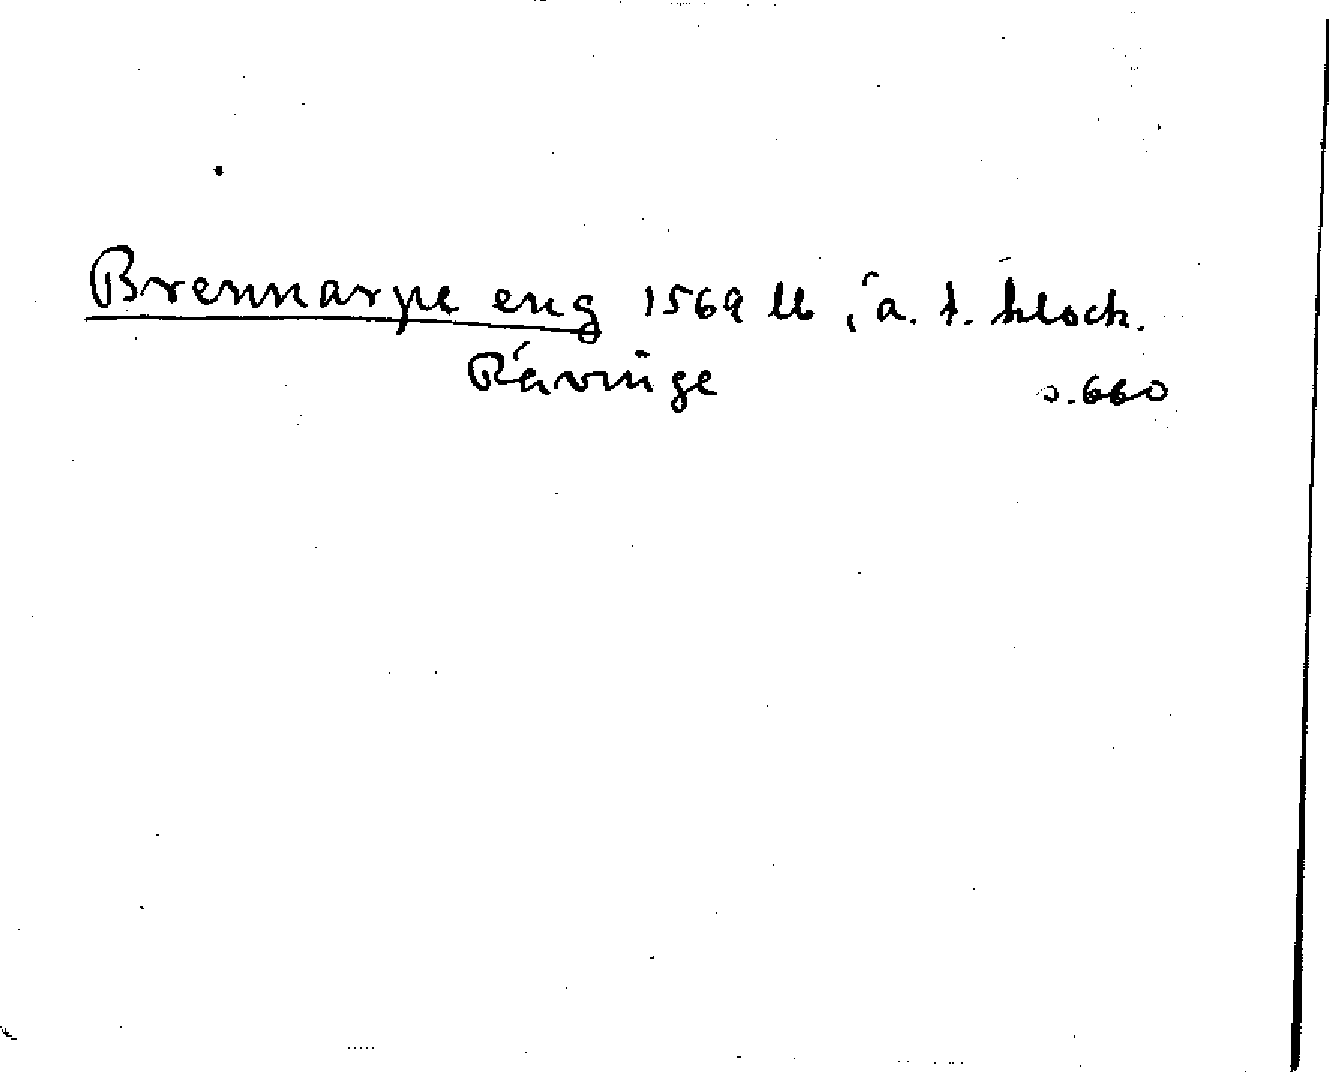 Brennarpe eng 1569 lb, ä. t. klock.
Rävinge s. 660